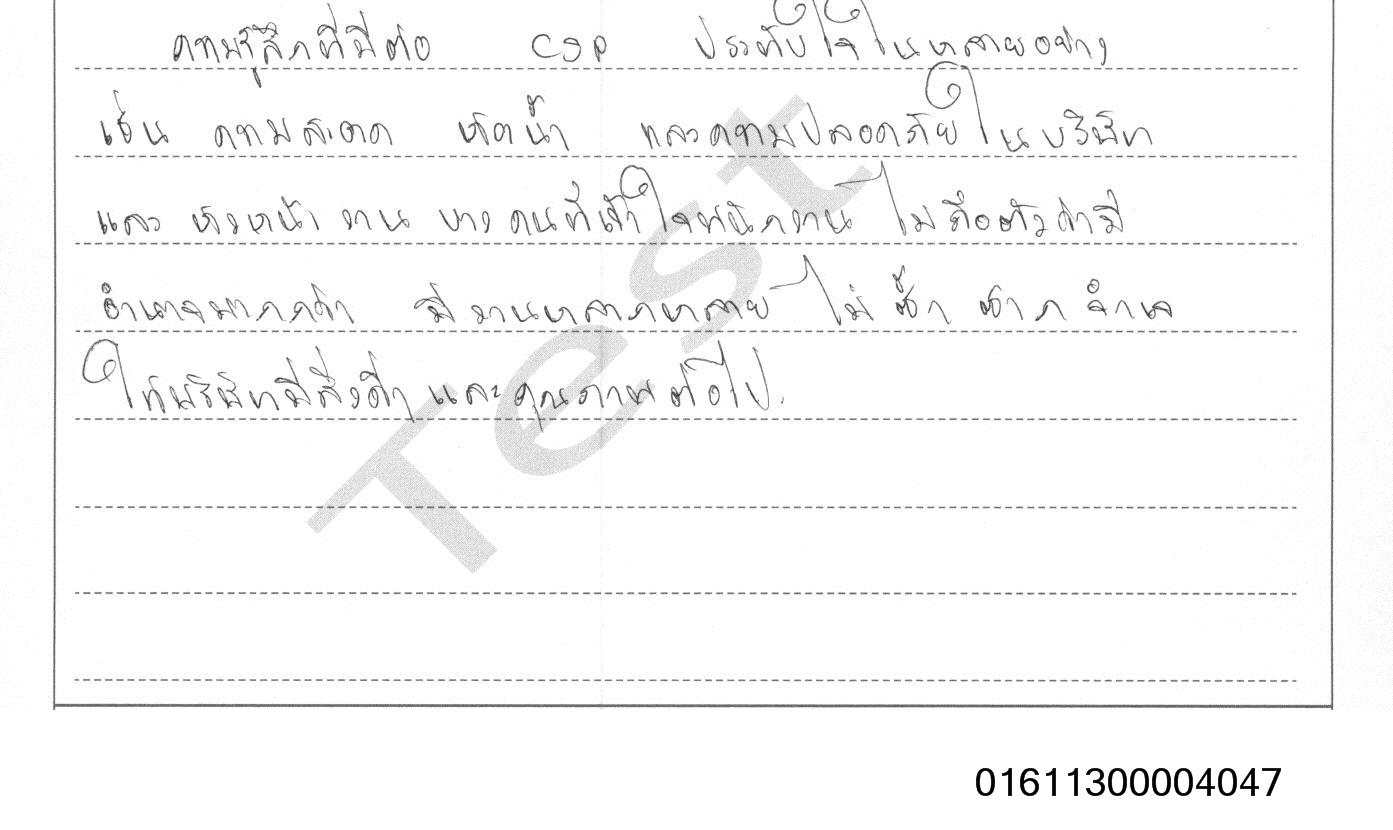 ความรู้สึกที่มีต่อ CSP ประทับใจในหลายอย่าง
เช่น ความสะอาด ห้องน้ำ และความปลอดภัยในบริษัท
และ หัวหน้างาน บางคนที่เข้าใจพนักงาน ไม่ถือตัวว่ามี
อำนาจมากกว่า มีงานหลากหลาย ไม่ซ้ำซาก จำเจ
ให้บริษัทมีสิ่งดีๆ และคุณภาพต่อไป.
Test
01611300004047